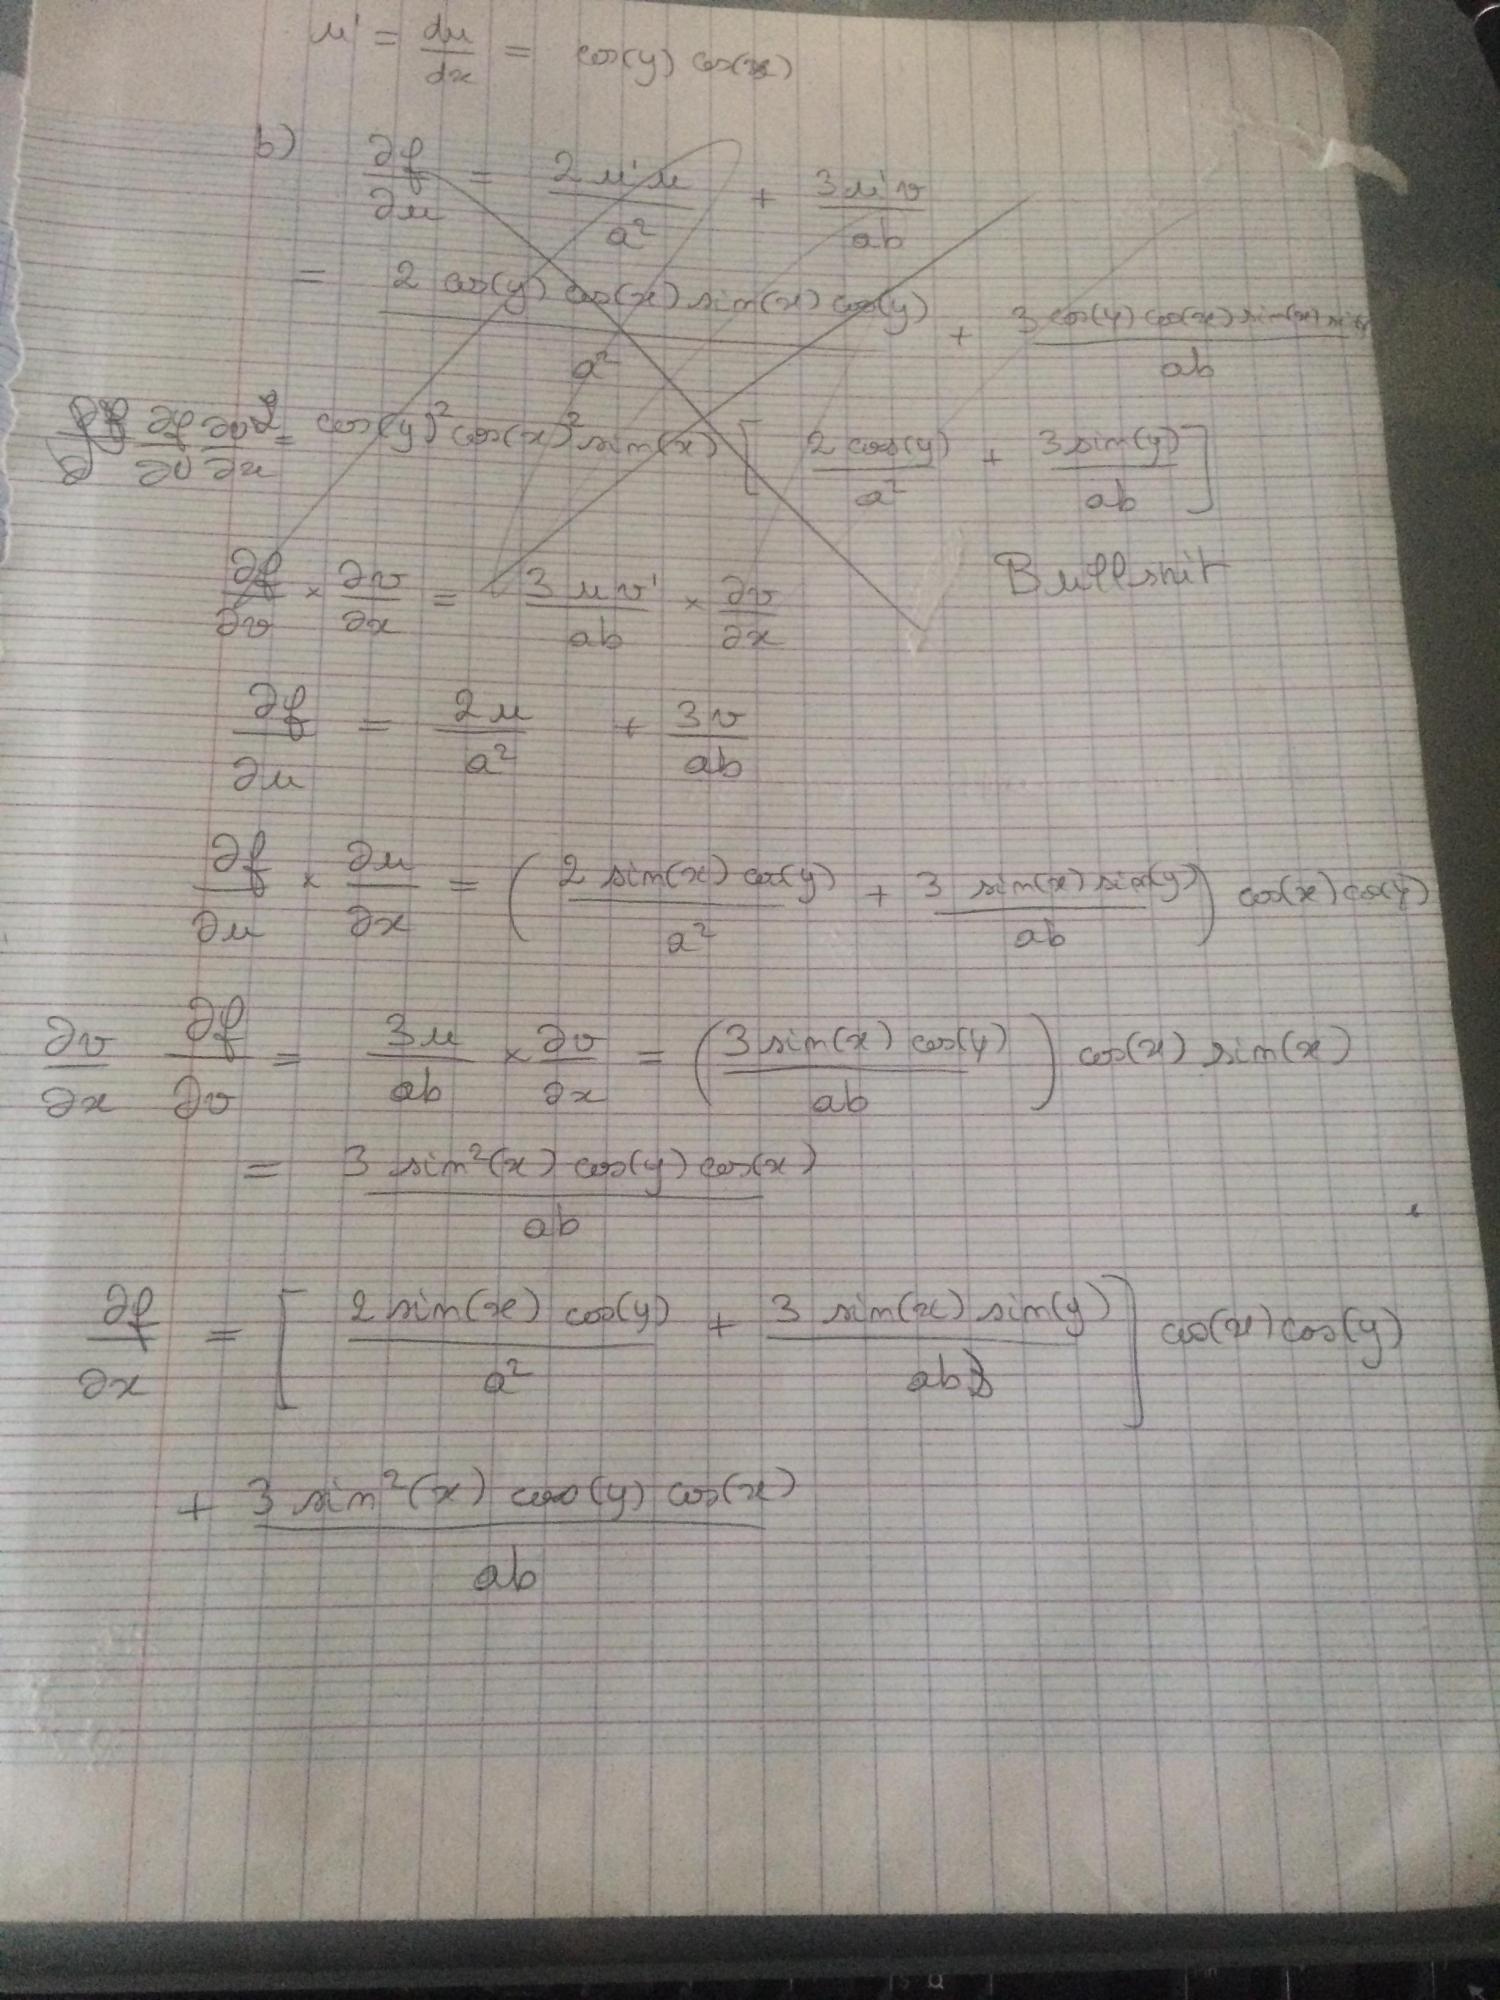 u' = du/dx = cos(y) cos(x)
b) ∂f/∂u = 2u'u/a² + 3u'v/ab
= 2 cos(y) cos(x) sin(x) cos(y)/a² + 3 cos(y) cos(x) sin(x)/ab
∂f/∂v ∂v/∂x = cos(y)² cos(x)² sin(x) [2 cos(y)/a² + 3 sin(y)/ab]
∂f/∂v × ∂v/∂x = 3uv'/ab × ∂v/∂x Bullshit
∂f/∂u = 2u/a² + 3v/ab
∂f/∂u × ∂u/∂x = (2 sin(x) cos(y)/a² + 3 sin(x) sin(y)/ab) cos(x) cos(y)
∂v/∂x ∂f/∂v = 3u/ab × ∂v/∂x = (3 sin(x) cos(y)/ab) cos(x) sin(x)
= 3 sin²(x) cos(y) cos(x)/ab
∂f/∂x = [2 sin(x) cos(y)/a² + 3 sin(x) sin(y)/ab] cos(x) cos(y)
+ 3 sin²(x) cos(y) cos(x)/ab